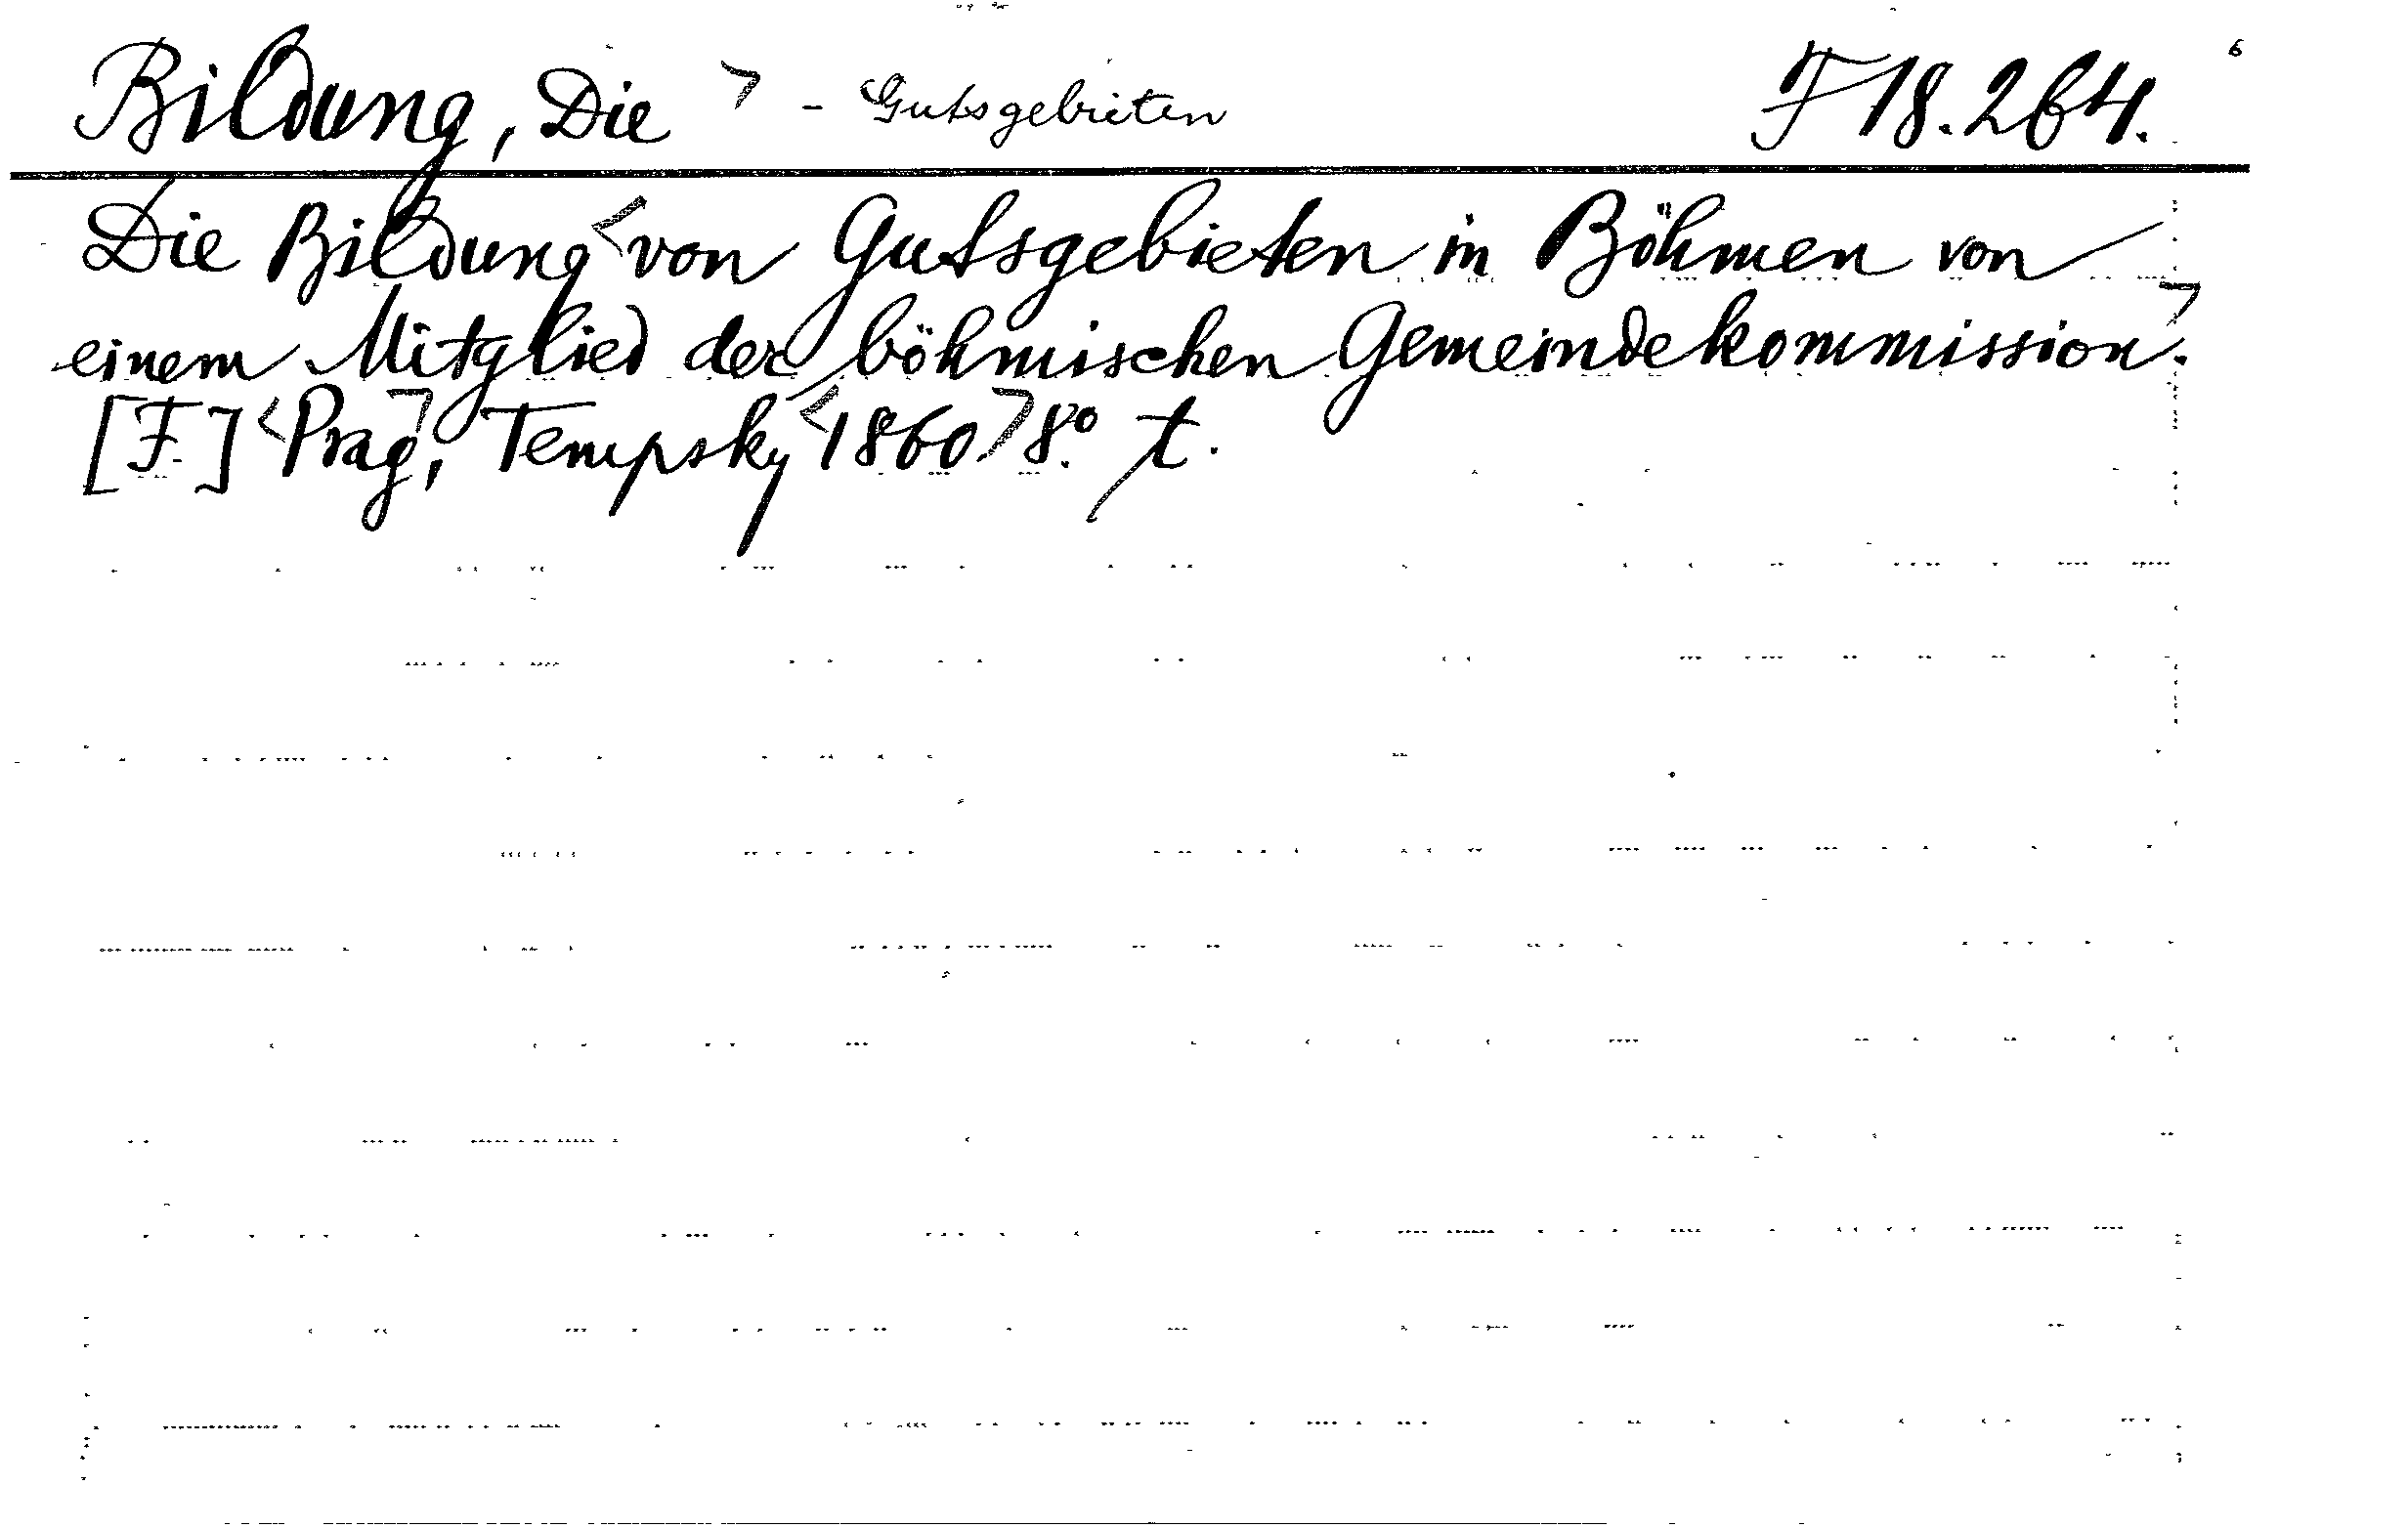 Bildung, Die ⁊ - Gutsgebieten F 18.264. 6
Die Bildung <von Gutsgebieten in Böhmen von
einem Mitglied der böhmischen Gemeindekommission.
[F] <Prag>, Tempsky <1860> 8°. t.